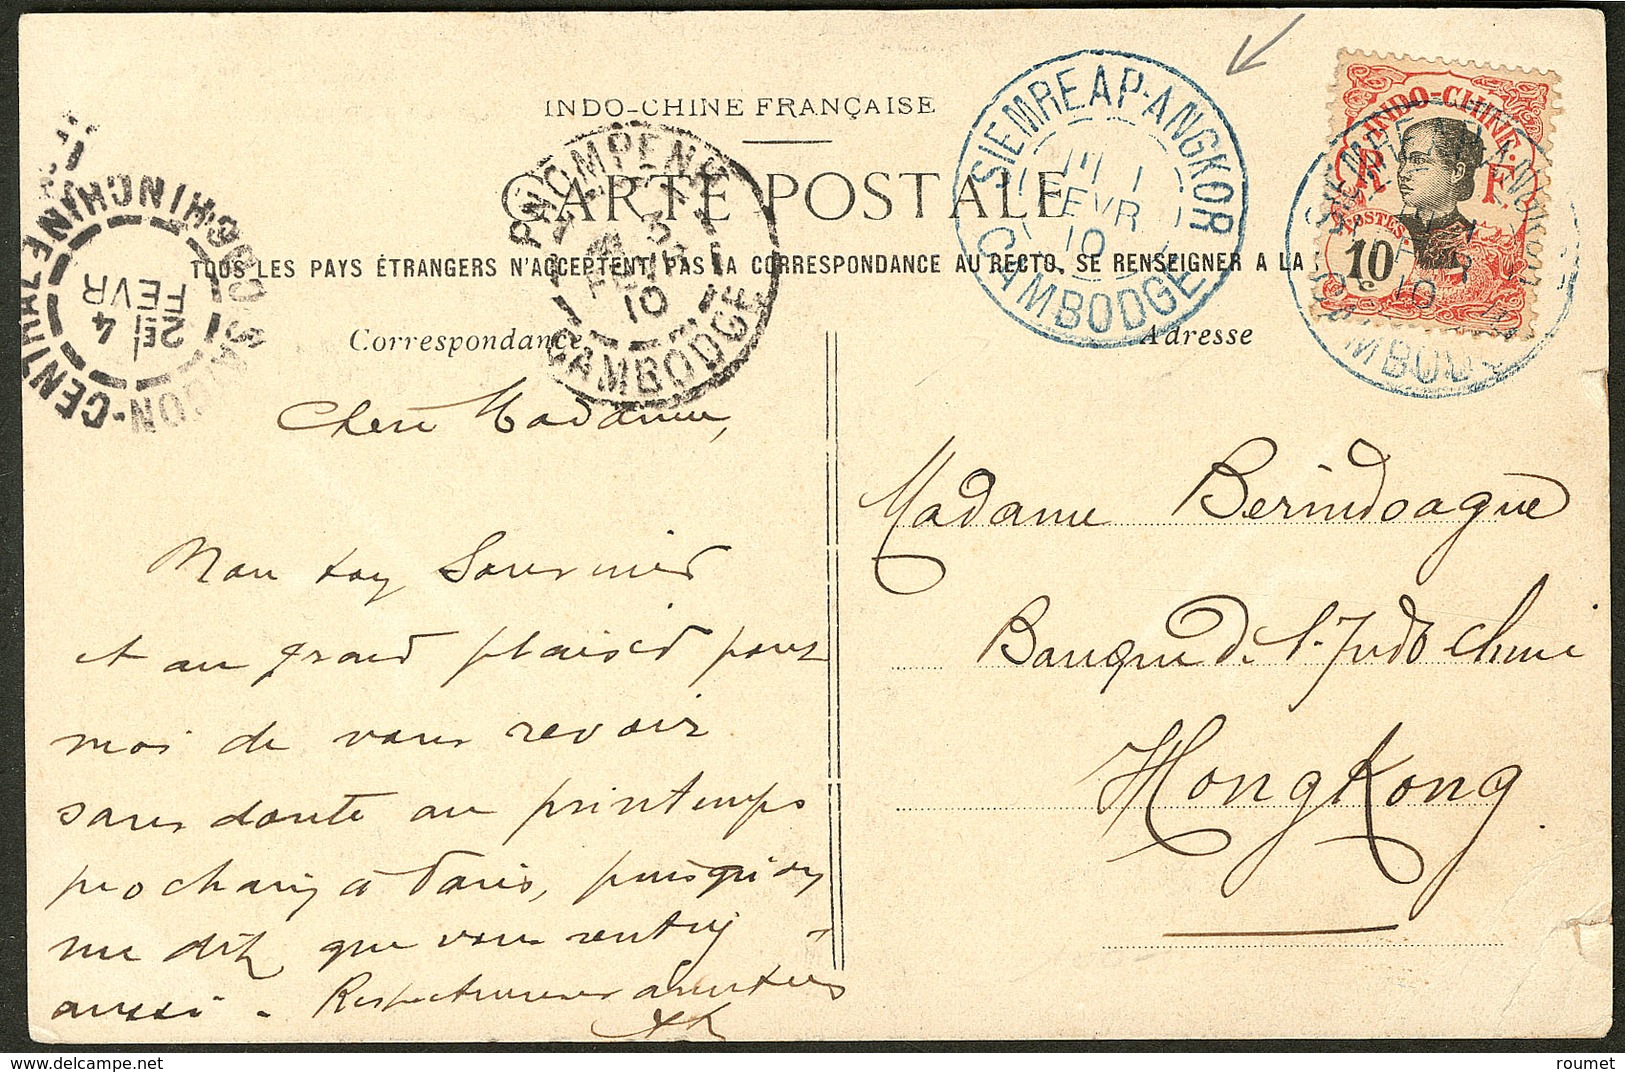 INDO-CHINE FRANÇAISE
CARTE POSTALE
TOUS LES PAYS ÉTRANGERS N'ACCEPTENT PAS LA CORRESPONDANCE AU RECTO. SE RENSEIGNER A LA
Correspondance
Adresse
SIEMREAP-ANGKOR
1
FEVR
10
CAMBODGE
PNOMPENH
3
FEVR
10
CAMBODGE
SAIGON-CENTRAL
COCHINCHINE
2E
4
FEVR
INDO-CHINE
R F
POSTES
10
SIEMREAP-ANGKOR
10
CAMBODGE
Chère Madame,
Mon souvenir
et au grand plaisir pour
moi de vous revoir
sans doute au printemps
prochain à Paris, puisqu'on
me dit que vous rentrez
aussi - Respectueuses amitiés
Madame Berindoague
Banque de l'Indo Chine
HongKong
delcampe.net
roumet